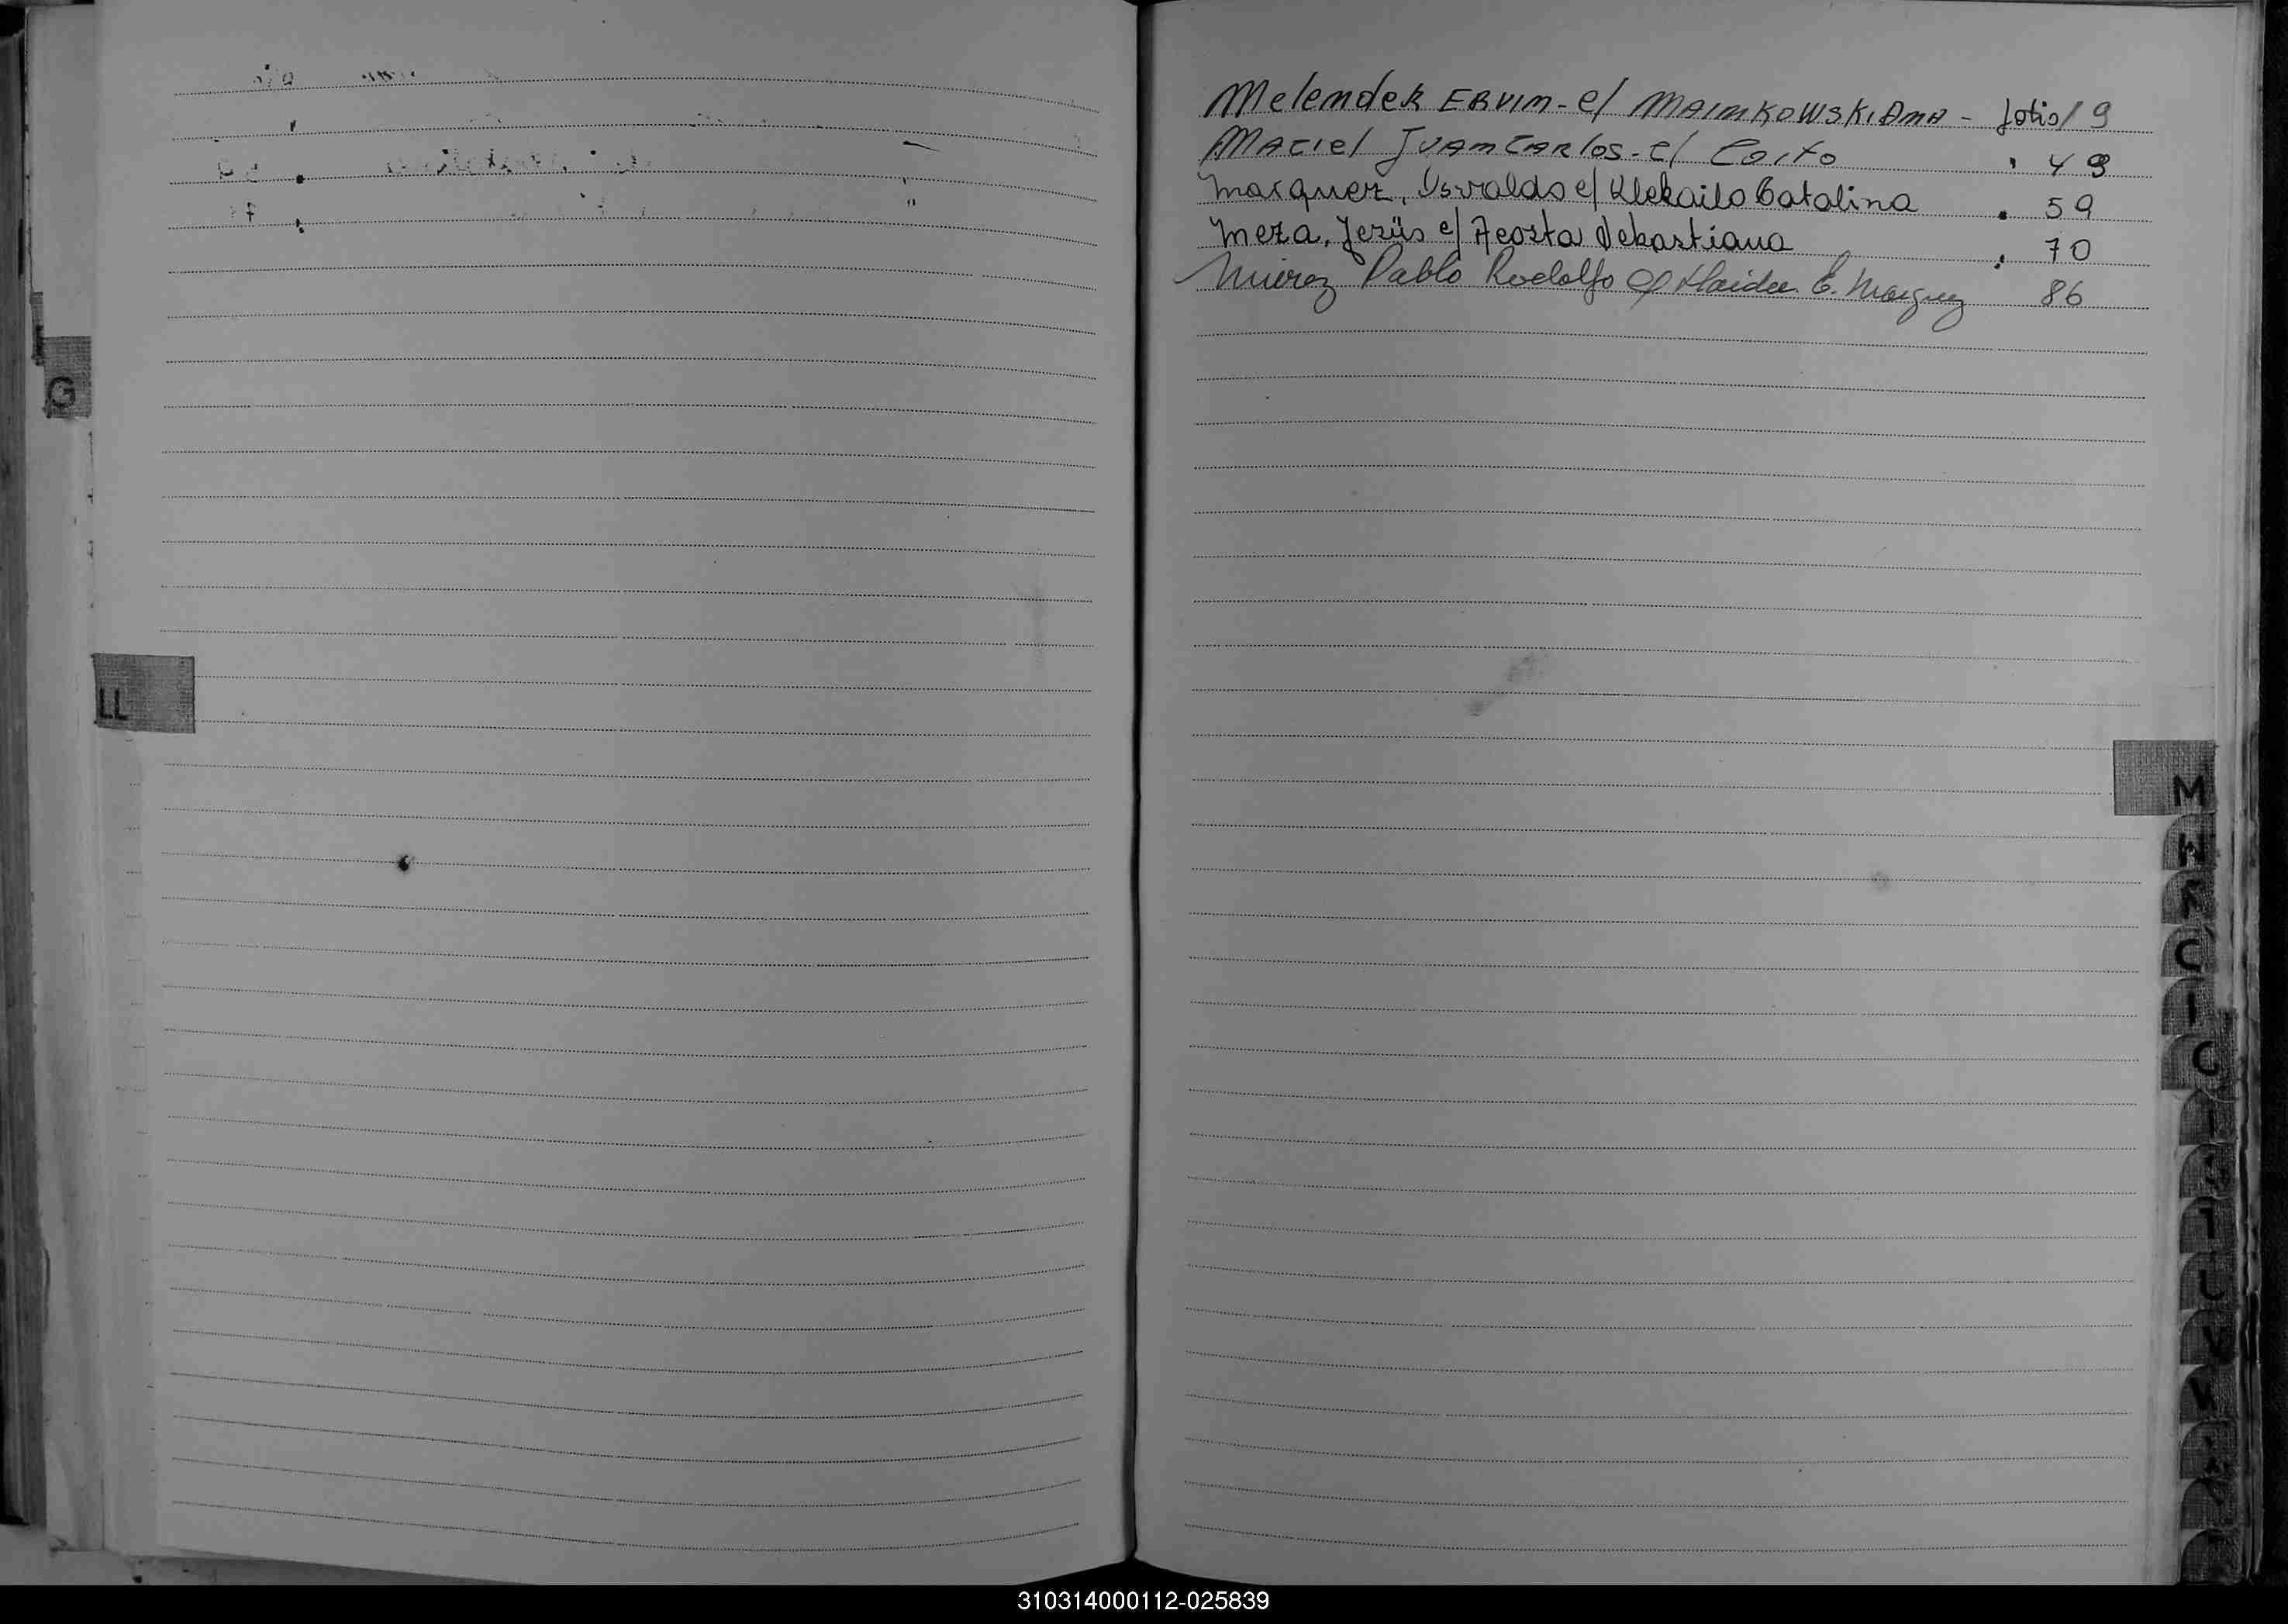 G
LL
Melendek ERVIM - c/ MAIMKOWSKI AMA - folio 19
MACIEL JUAM CARLOS - c/ Coito " 49
Marquez, Osvaldo c/ Klekailo Catalina " 59
Meza, Jesús c/ Acosta Sebastiana " 70
Pablo Rodolfo c/ Haidee E. Marquez 86
M
310314000112-025839